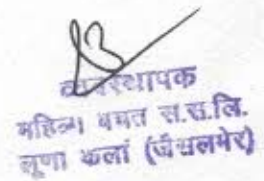 व्यवस्थापक
महिला बचत स.स.लि.
लूणा कलां (जैसलमेर)